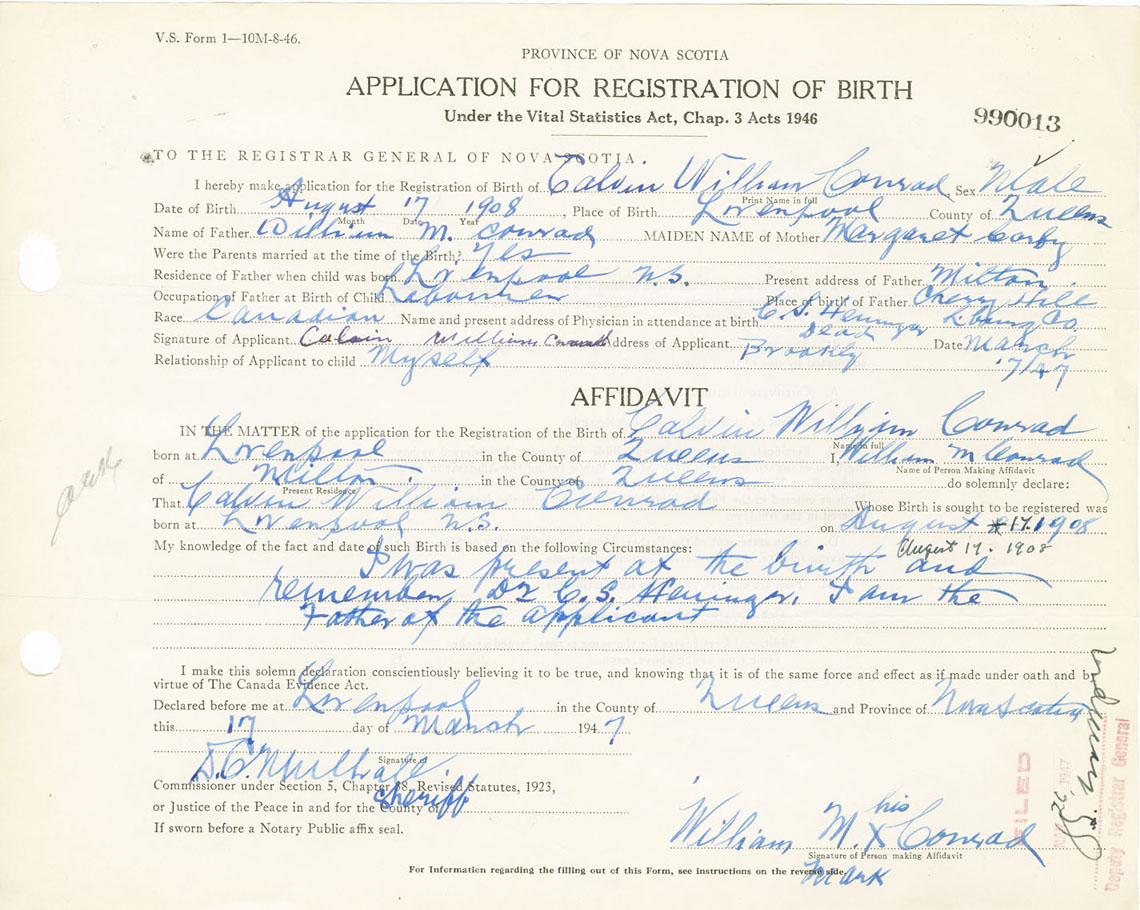 V.S. Form 1—10M-8-46.
PROVINCE OF NOVA SCOTIA
APPLICATION FOR REGISTRATION OF BIRTH
Under the Vital Statistics Act, Chap. 3 Acts 1946
990013
TO THE REGISTRAR GENERAL OF NOVA SCOTIA.
I hereby make application for the Registration of Birth of Calvin William Conrad, Sex Male
Print Name in full
Date of Birth August 17 1908, Place of Birth Liverpool County of Queens
Month Date Year
Name of Father William M. Conrad MAIDEN NAME of Mother Margaret Corby
Were the Parents married at the time of the Birth? Yes
Residence of Father when child was born Liverpool N.S. Present address of Father Milton.
Occupation of Father at Birth of Child Labourer Place of birth of Father Cherry Hill
Race Canadian Name and present address of Physician in attendance at birth C.S. Heninger Lburg Co.
Dead
Signature of Applicant Calvin William Conrad Address of Applicant Brookly Date March
Relationship of Applicant to child Myself 17/47
AFFIDAVIT
IN THE MATTER of the application for the Registration of the Birth of Calvin William Conrad
Name in full
born at Liverpool in the County of Queens I, William M Conrad
Name of Person Making Affidavit
of Milton. in the County of Queens do solemnly declare:
Present Residence
That Calvin William Conrad Whose Birth is sought to be registered was
born at Liverpool N.S. on August 17. 1908
My knowledge of the fact and date of such Birth is based on the following Circumstances: August 17. 1908
I was present at the birth and
remember Dr C.S. Heninger. I am the
Father of the applicant
I make this solemn declaration conscientiously believing it to be true, and knowing that it is of the same force and effect as if made under oath and by
virtue of The Canada Evidence Act.
Declared before me at Liverpool in the County of Queens and Province of Nova Scotia
this 17 day of March 1947
Signature of
Commissioner under Section 5, Chapter 38, Revised Statutes, 1923,
or Justice of the Peace in and for the County of Sheriff
If sworn before a Notary Public affix seal.
his
William M. X Conrad
Signature of Person making Affidavit
mark
For Information regarding the filling out of this Form, see instructions on the reverse side.
FILED
1947
Deputy Registrar General